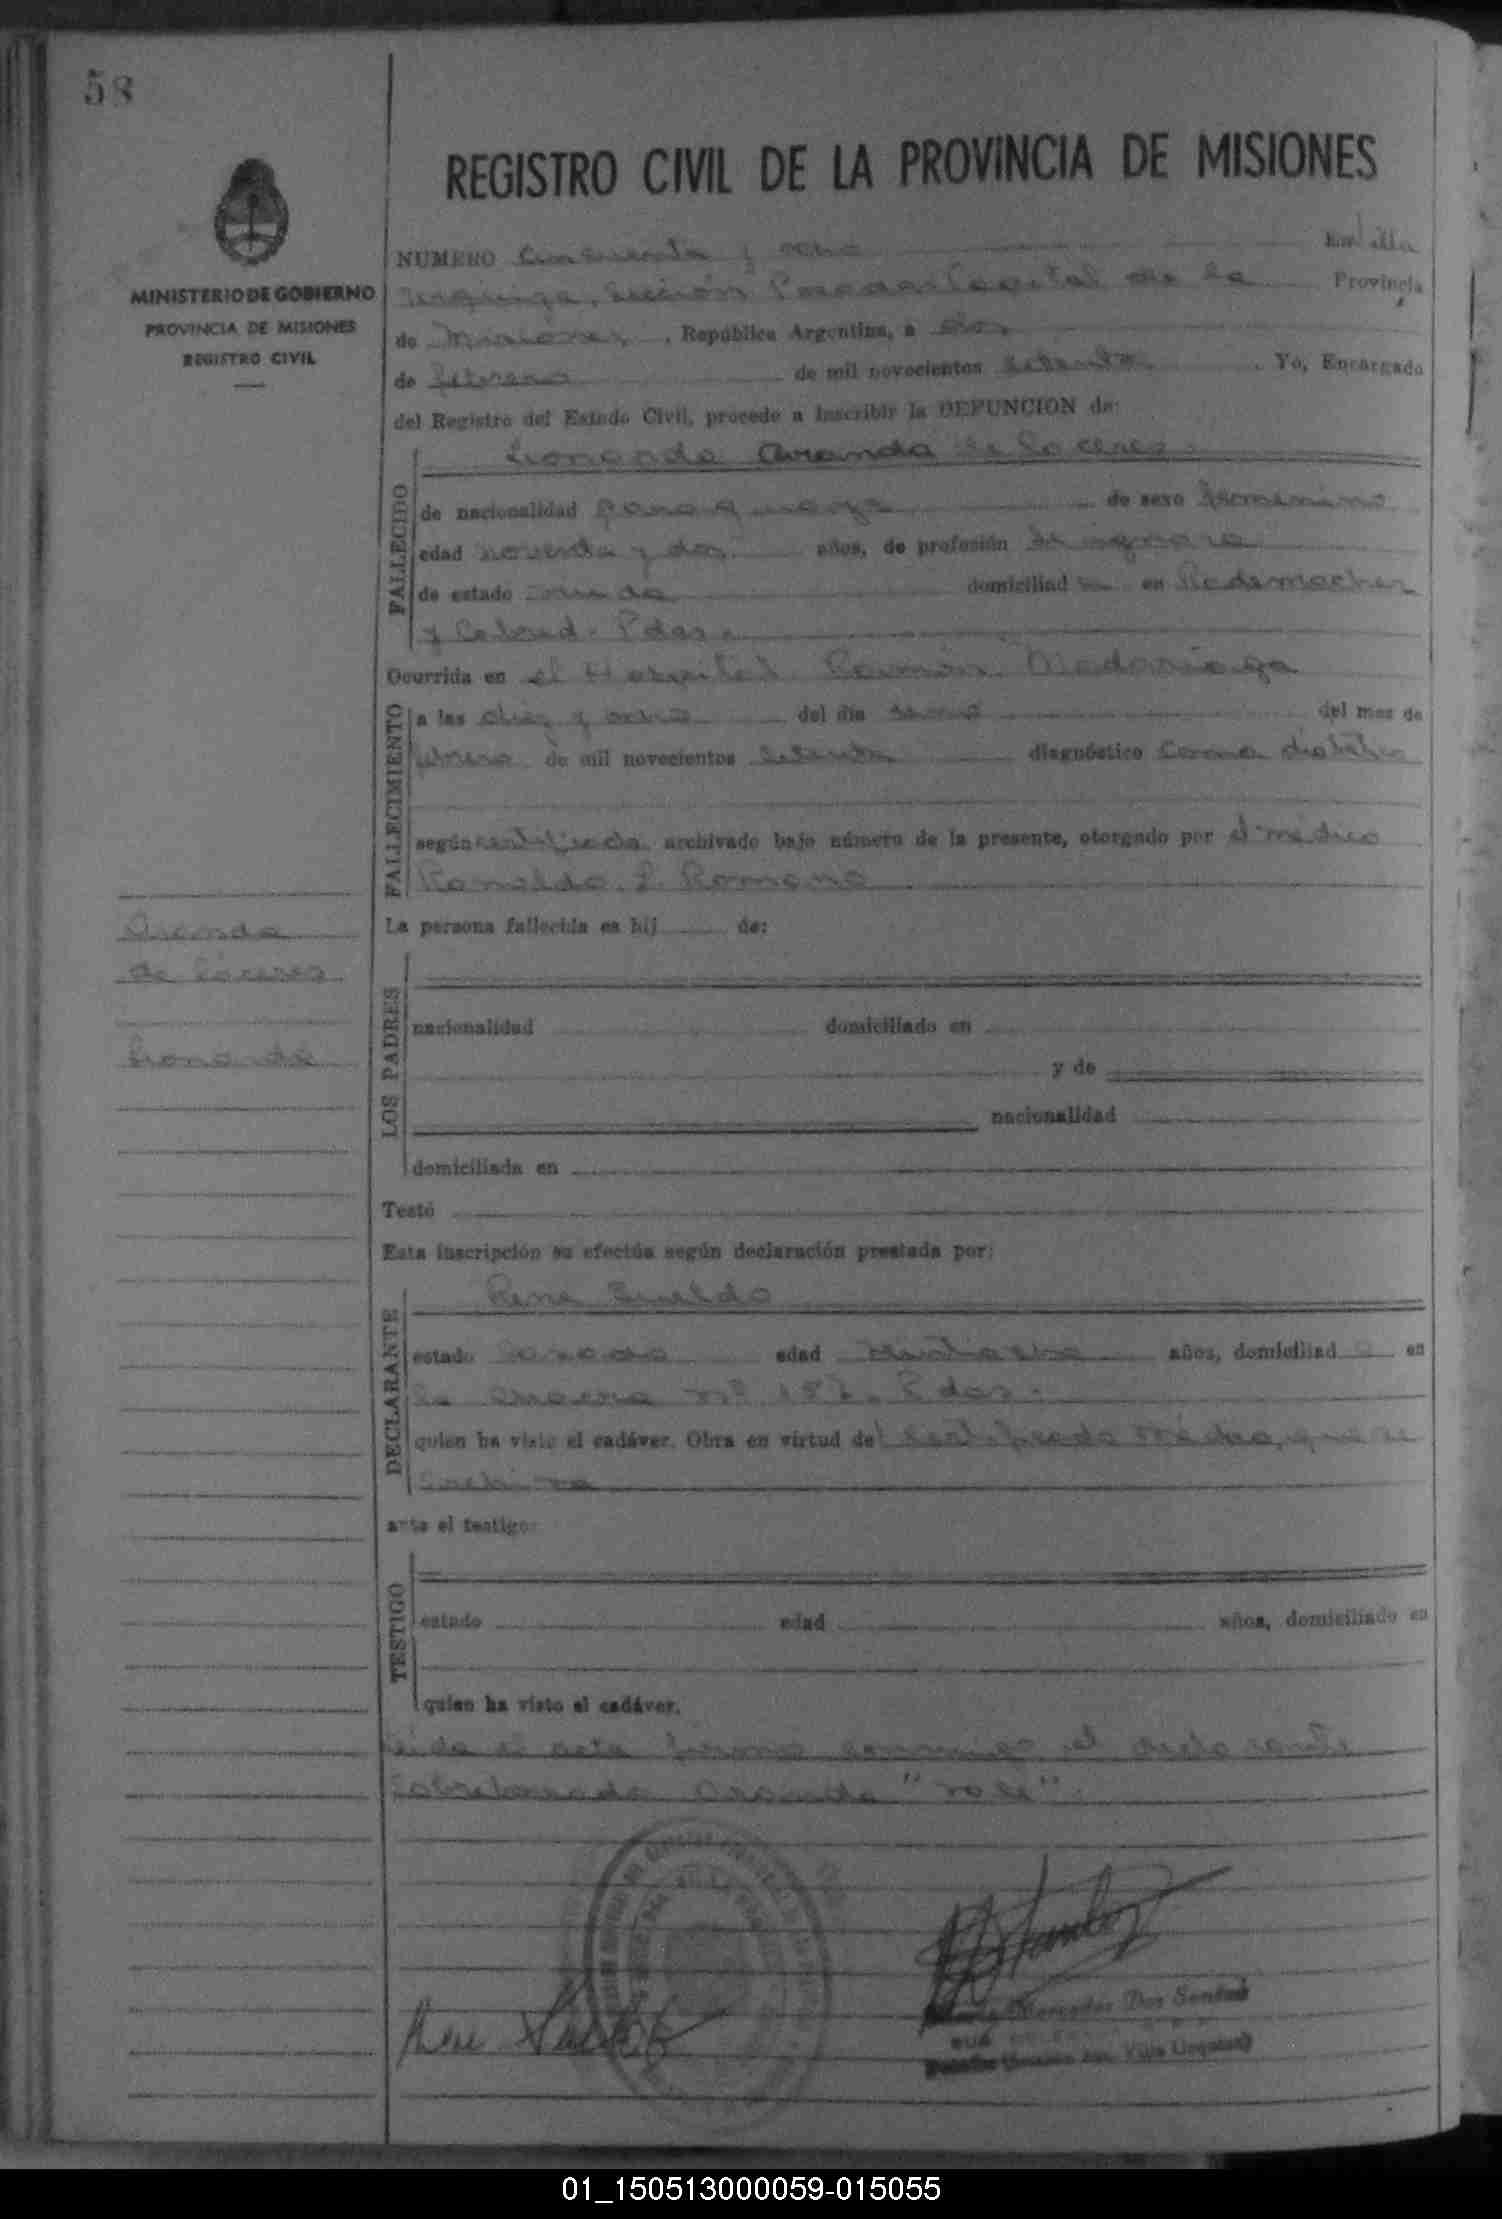 58
REGISTRO CIVIL DE LA PROVINCIA DE MISIONES
MINISTERIO DE GOBIERNO
PROVINCIA DE MISIONES
REGISTRO CIVIL
NUMERO Cincuenta y ocho En Villa
Urquiza, Sección Posadas Capital de la Provincia
de Misiones, República Argentina, a dos
de febrero de mil novecientos setenta. Yo, Encargado
del Registro del Estado Civil, procedo a inscribir la DEFUNCION de:
Leonarda Aranda de Caceres
FALLECIDO
de nacionalidad paraguaya de sexo femenino
edad noventa y dos años, de profesión
de estado viuda domiciliad en Rademacher
y Cabred. Pdas.
Ocurrida en el Hospital Ramón Madariaga
FALLECIMIENTO
a las diez y ocho del día uno del mes de
febrero de mil novecientos setenta diagnóstico Coma diabético
según certificado archivado bajo número de la presente, otorgado por el médico
Ronaldo Romano
La persona fallecida es hij de:
Aranda
de Caceres
Leonarda
LOS PADRES
nacionalidad domiciliado en
y de
nacionalidad
domiciliada en
Testó
Esta inscripción se efectúa según declaración prestada por:
Rene
DECLARANTE
estado Casado edad años, domiciliad o en
la chacra nº Pdas.
quien ha visto el cadáver. Obra en virtud del Certificado médico, que se
archiva
ante el testigo:
TESTIGO
estado edad años, domiciliado en
quien ha visto el cadáver.
Leida el acta firma conmigo el declarante
Sobreborrado Aranda "vale".
Rene
Mercedes Dos Santos
Villa Urquiza
01_150513000059-015055